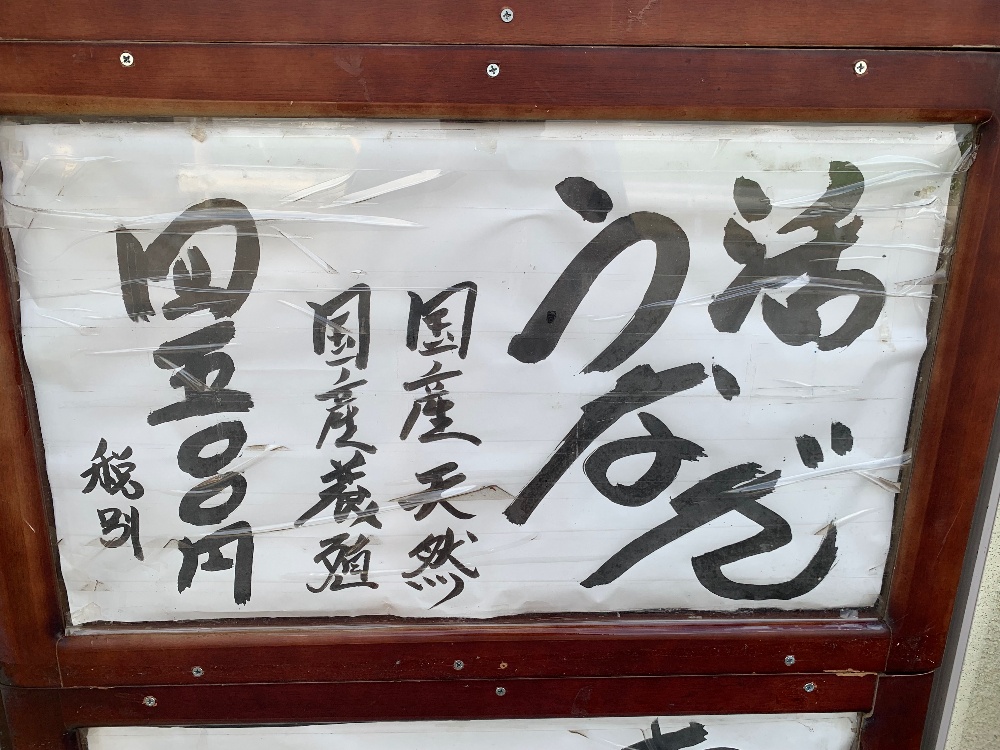 活
うなぎ
国産天然
国産養殖
四五〇〇円
税別